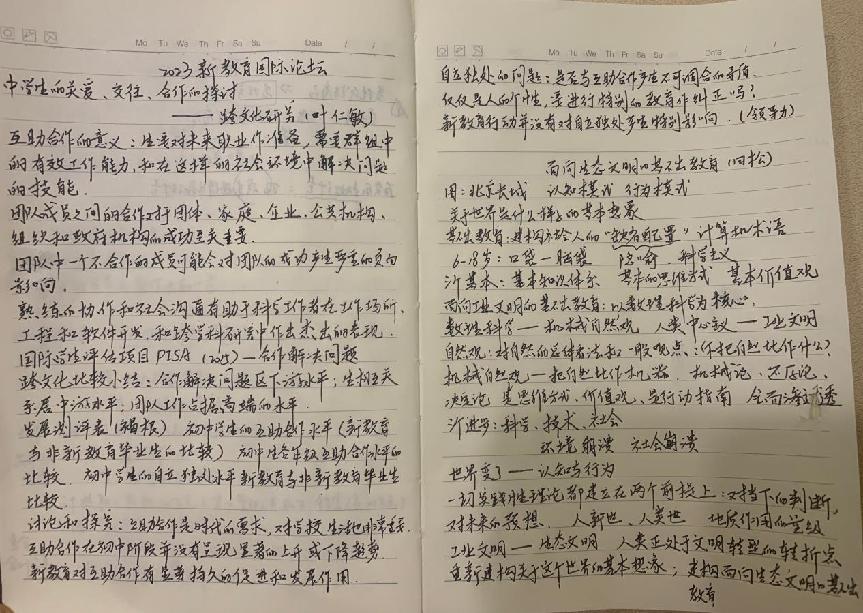 Mo Tu We Th Fr Sa Su Date / /
2023新教育国际论坛
中学生的关爱、交往、合作的探讨
——跨文化研究(叶仁敏)
互助合作的意义:学生要对未来职业作准备,需要群组中
的有效工作能力,和在这样的社会环境中解决问题
的技能。
团队成员之间的合作对于团体、家庭、企业、公共机构、
组织和政府机构的成功至关重要。
团队中一个不合作的成员可能会对团队的成功产生严重的负面
影响。
熟练的协作和社会沟通有助于科学工作者在工作场所、
工程和软件开发、和跨学科研究中作出杰出的表现。
国际学生评估项目PISA(2015)—合作解决问题
跨文化比较小结:合作解决问题区下游水平;生相互关
系居中游水平;团队工作占据高端的水平。
发展测评表 初中学生的互助合作水平(新教育
与非新教育毕业生的比较) 初中生各年级互助合作水平的
比较 初中学生的自立独处水平新教育与非新教育毕业生
比较
讨论和探究:互助合作是时代的需求,对学校生活也非常重要。
互助合作在初中阶段并没有呈现显著的上升或下降趋势。
新教育对互助合作有显著持久的促进和发展作用。
Mo Tu We Th Fr Sa Su Date / /
自立独处的问题:是否与互助合作产生不可调合的矛盾,
仅仅是人的个性,要进行特别的教育作纠正吗?
新教育行动并没有对自立独处产生特别影响。(领导力)
面向生态文明的基础教育(田松)
图:北京长城 认知模式 行为模式
关于世界是什么样子的基本想象
基础教育:建构人的“缺省配置” 计算机术语
6-18岁:口袋—脑袋 科学主义
基本:基本知识体系 基本的思维方式 基本价值观
面向工业文明的基础教育:以数理科学为核心。
数理科学——机械自然观 人类中心主义——工业文明
自然观:对自然的总体看法和一般观点:你把自然比作什么?
机械自然观—把自然比作机器 机械论、还原论、
决定论 思维方式、价值观、与行动指南 全面渗透
进步:科学、技术、社会
环境崩溃 社会崩溃
世界变了——认知与行为
一切实践性理论都建立在两个前提上:对当下的判断,
对未来的预想. 人新世、人类世 地质作用的等级
工业文明——生态文明 人类正处于文明转型的转折点
重新建构关于这个世界的基本想象;建构面向生态文明的基础
教育